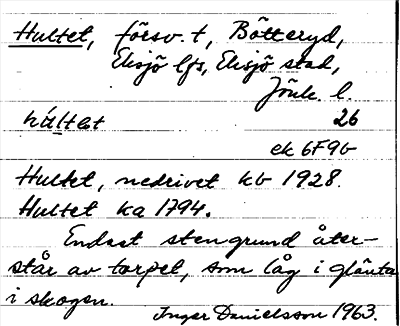 Hultet, försv. t, Bötteryd,
Eksjö lfs, Eksjö stad,
Jönk. l.
húltet 26
ek 6F9b
Hultet, nedrivet kb 1928.
Hultet ka 1794.
Endast stengrund åter-
står av torpet, som låg i glänta
i skogen.
Inger Danielsson 1963.